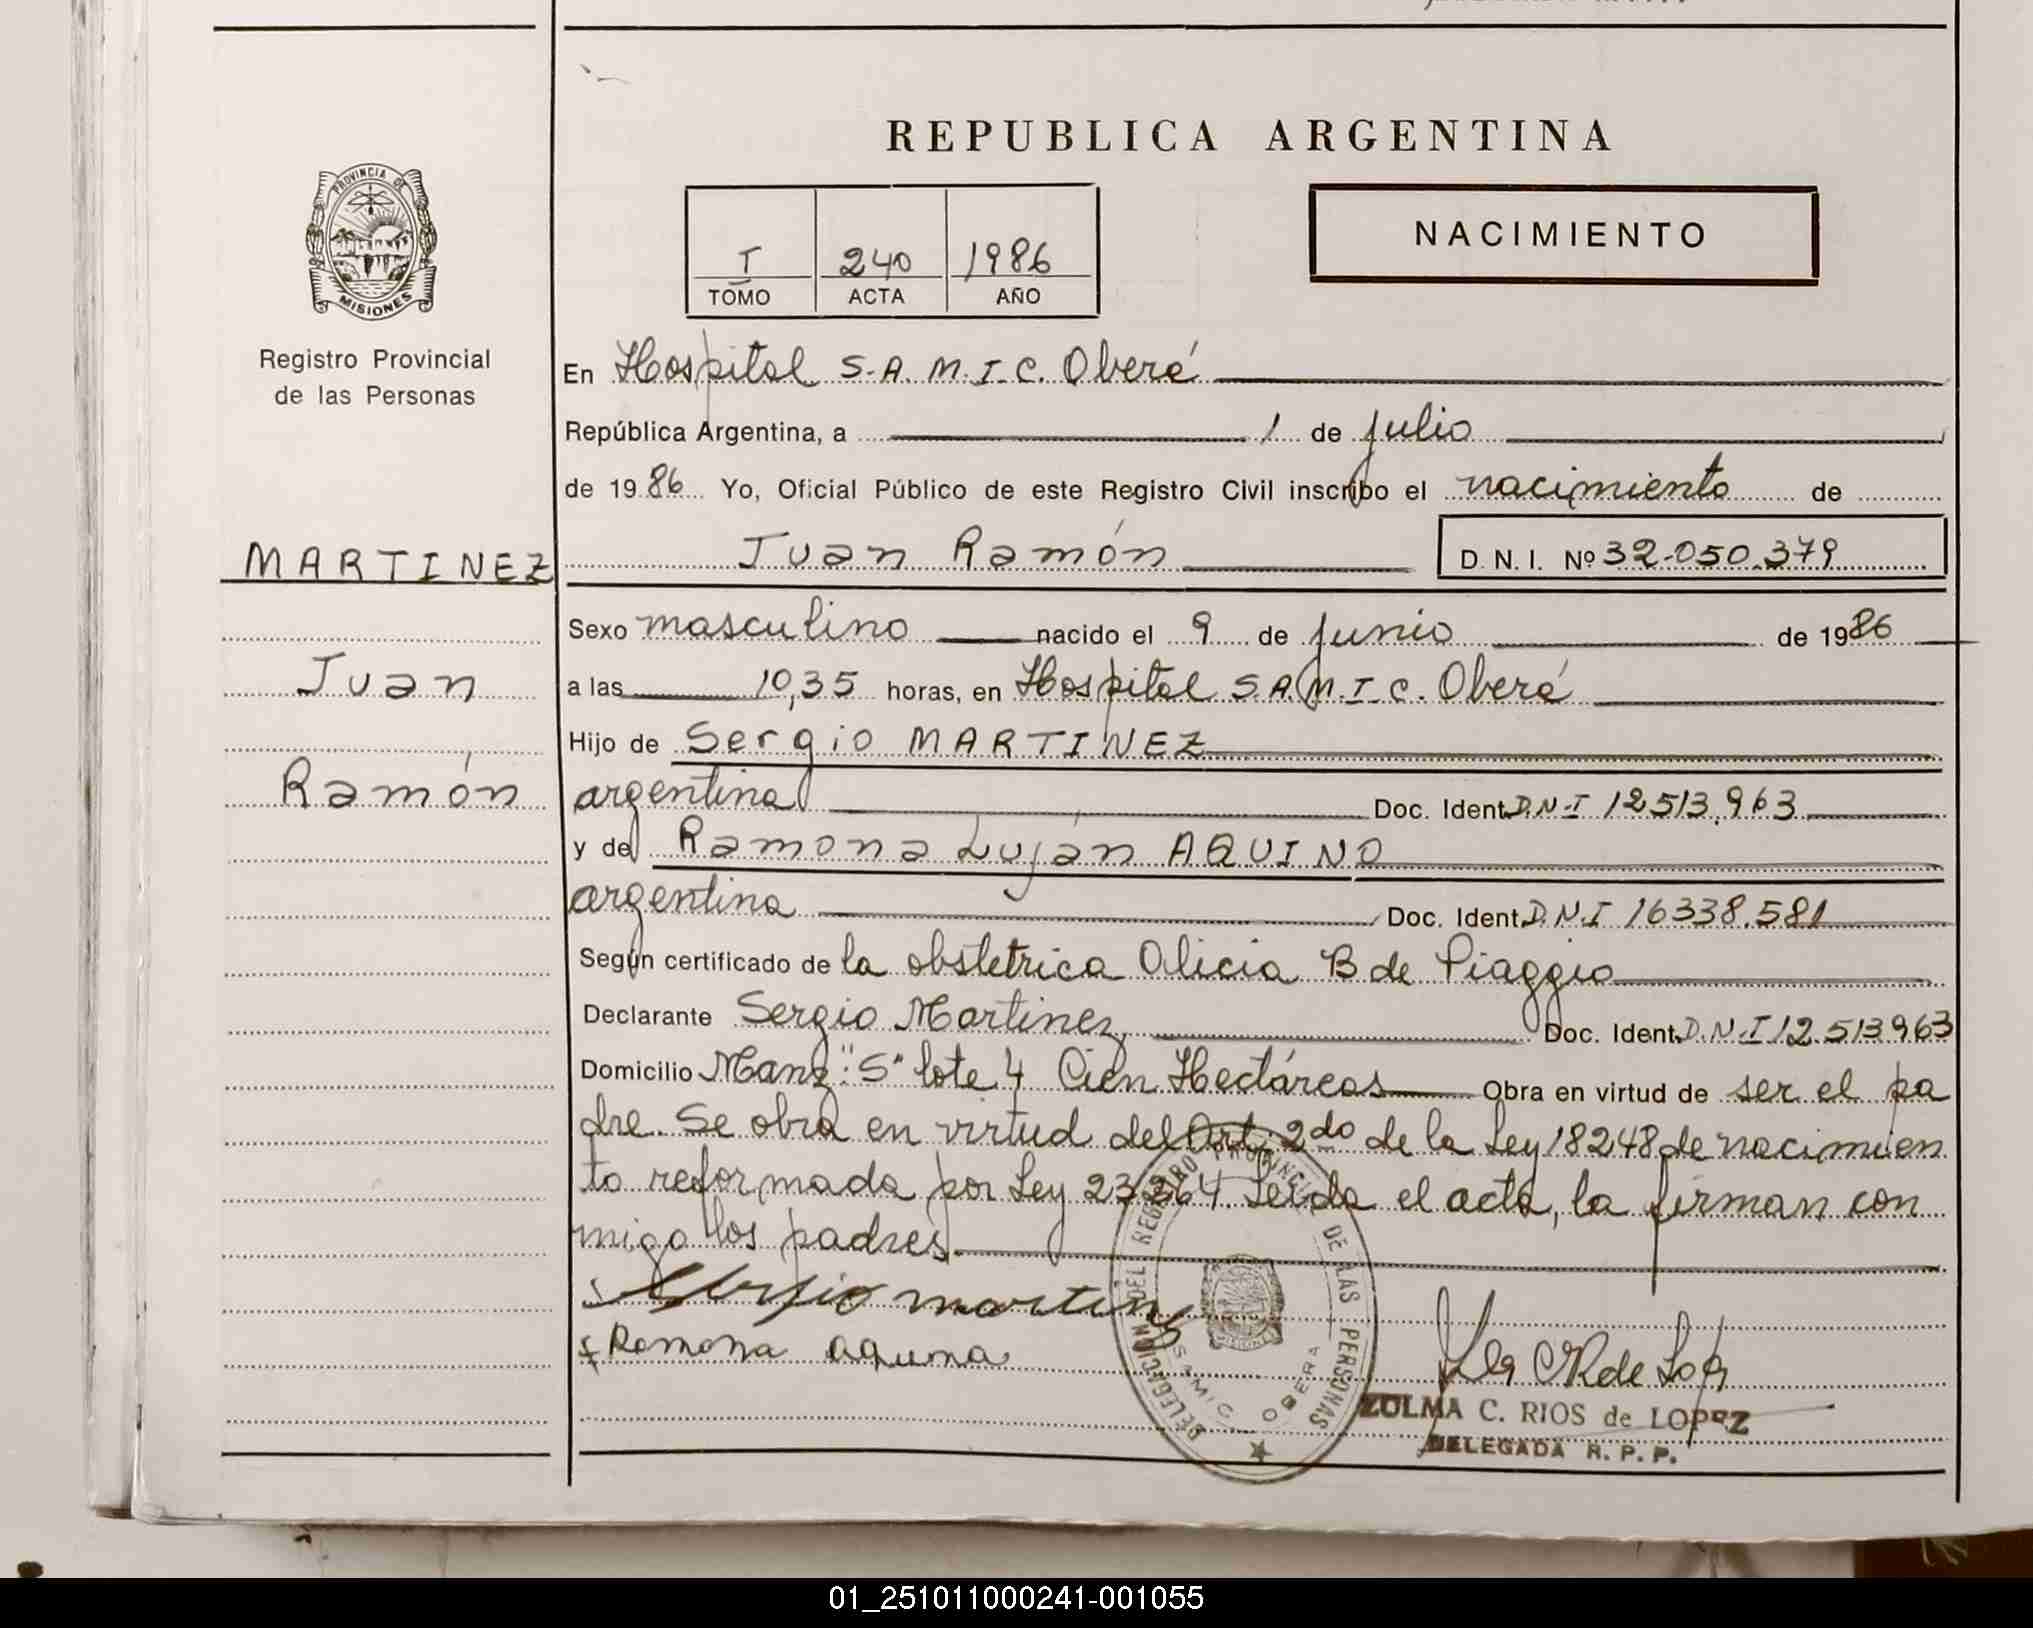 REPUBLICA ARGENTINA
PROVINCIA DE
MISIONES
Registro Provincial
de las Personas
I 240 1986
TOMO ACTA AÑO
NACIMIENTO
En Hospital S.A.M.I.C. Oberá
República Argentina, a 1 de julio
de 1986 Yo, Oficial Público de este Registro Civil inscribo el nacimiento de
MARTINEZ
Juan Ramón D.N.I. Nº 32.050.379
Sexo masculino nacido el 9 de junio de 1986
Juan
a las 10,35 horas, en Hospital S.A.M.I.C. Oberá
Hijo de Sergio MARTINEZ
Ramón
argentina Doc. Ident. D.N.I 12513.963
y de Ramona Luján AQUINO
argentina Doc. Ident. D.N.I 16338.581
Según certificado de la obstetrica Alicia B de Piaggio
Declarante Sergio Martinez Doc. Ident. D.N.I 12.513963
Domicilio Manz "S" lote 4 Cien Hectáreas Obra en virtud de ser el pa
dre. Se obra en virtud del Art. 2do de la Ley 18248 de nacimien
to reformada por Ley 23264. Leida el acta, la firman con
migo los padres
Sergio martinez
Ramona aquino
DELEGACION DEL REGISTRO PROVINCIAL DE LAS PERSONAS
SAMIC OBERA
ZULMA C. RIOS de LOPEZ
DELEGADA R. P. P.
01_251011000241-001055